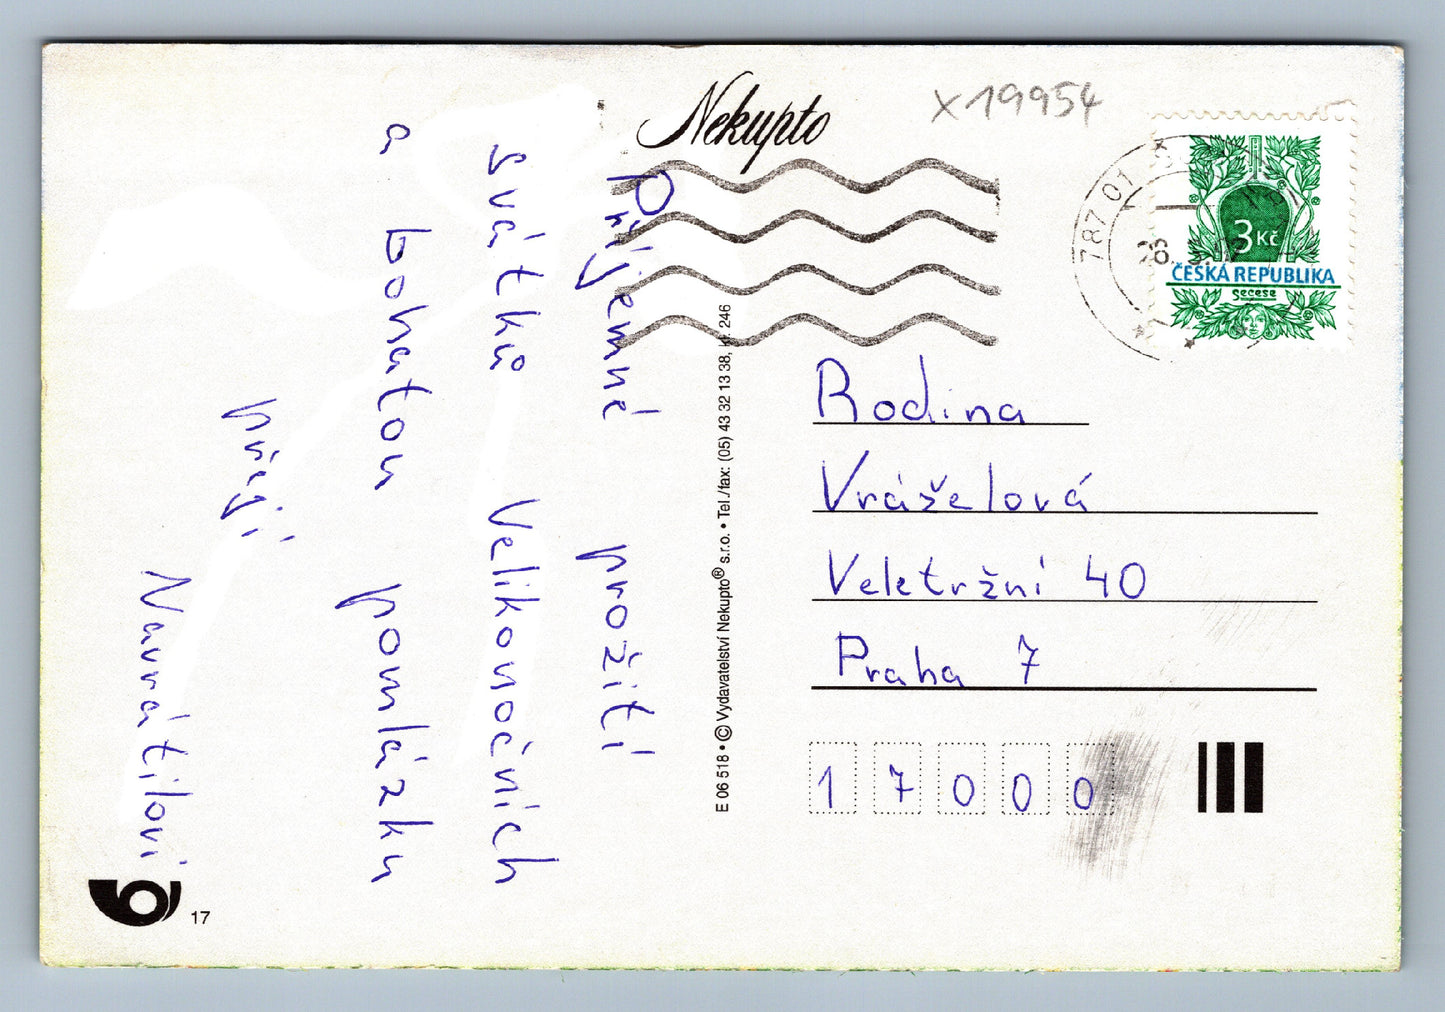 Nekupto
x 19954
787 01
3 Kč
ČESKÁ REPUBLIKA
Secese
Příjemné prožití
svátků Velikonočních
a bohatou pomlázku
přejí
Navrátilovi
E 06 518 • © Vydavatelství Nekupto® s.r.o. • Tel./fax: (05) 43 32 13 38, kl. 246
Rodina
Vrášelová
Veletržní 40
Praha 7
17000
17